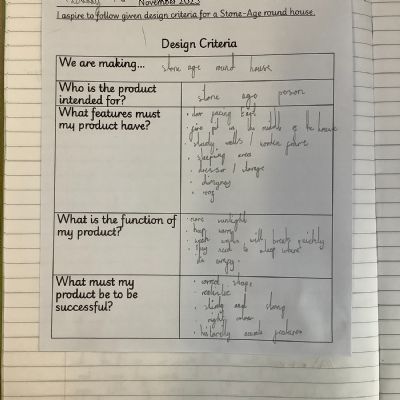 November 2023
I aspire to follow given design criteria for a Stone-Age round house.
Design Criteria
We are making... stone age round house
Who is the product
intended for?
stone age person
What features must
my product have?
• door facing East
• fire pit in the middle of the house
• sturdy walls / wooden
• sleeping area
• dresser / storage
What is the function of
my product?
• more sunlight
• keep warm
• weak walls will break quickly
• they need to sleep
What must my
product be to be
successful?
• correct shape
• realistic
• sturdy and strong
• historically